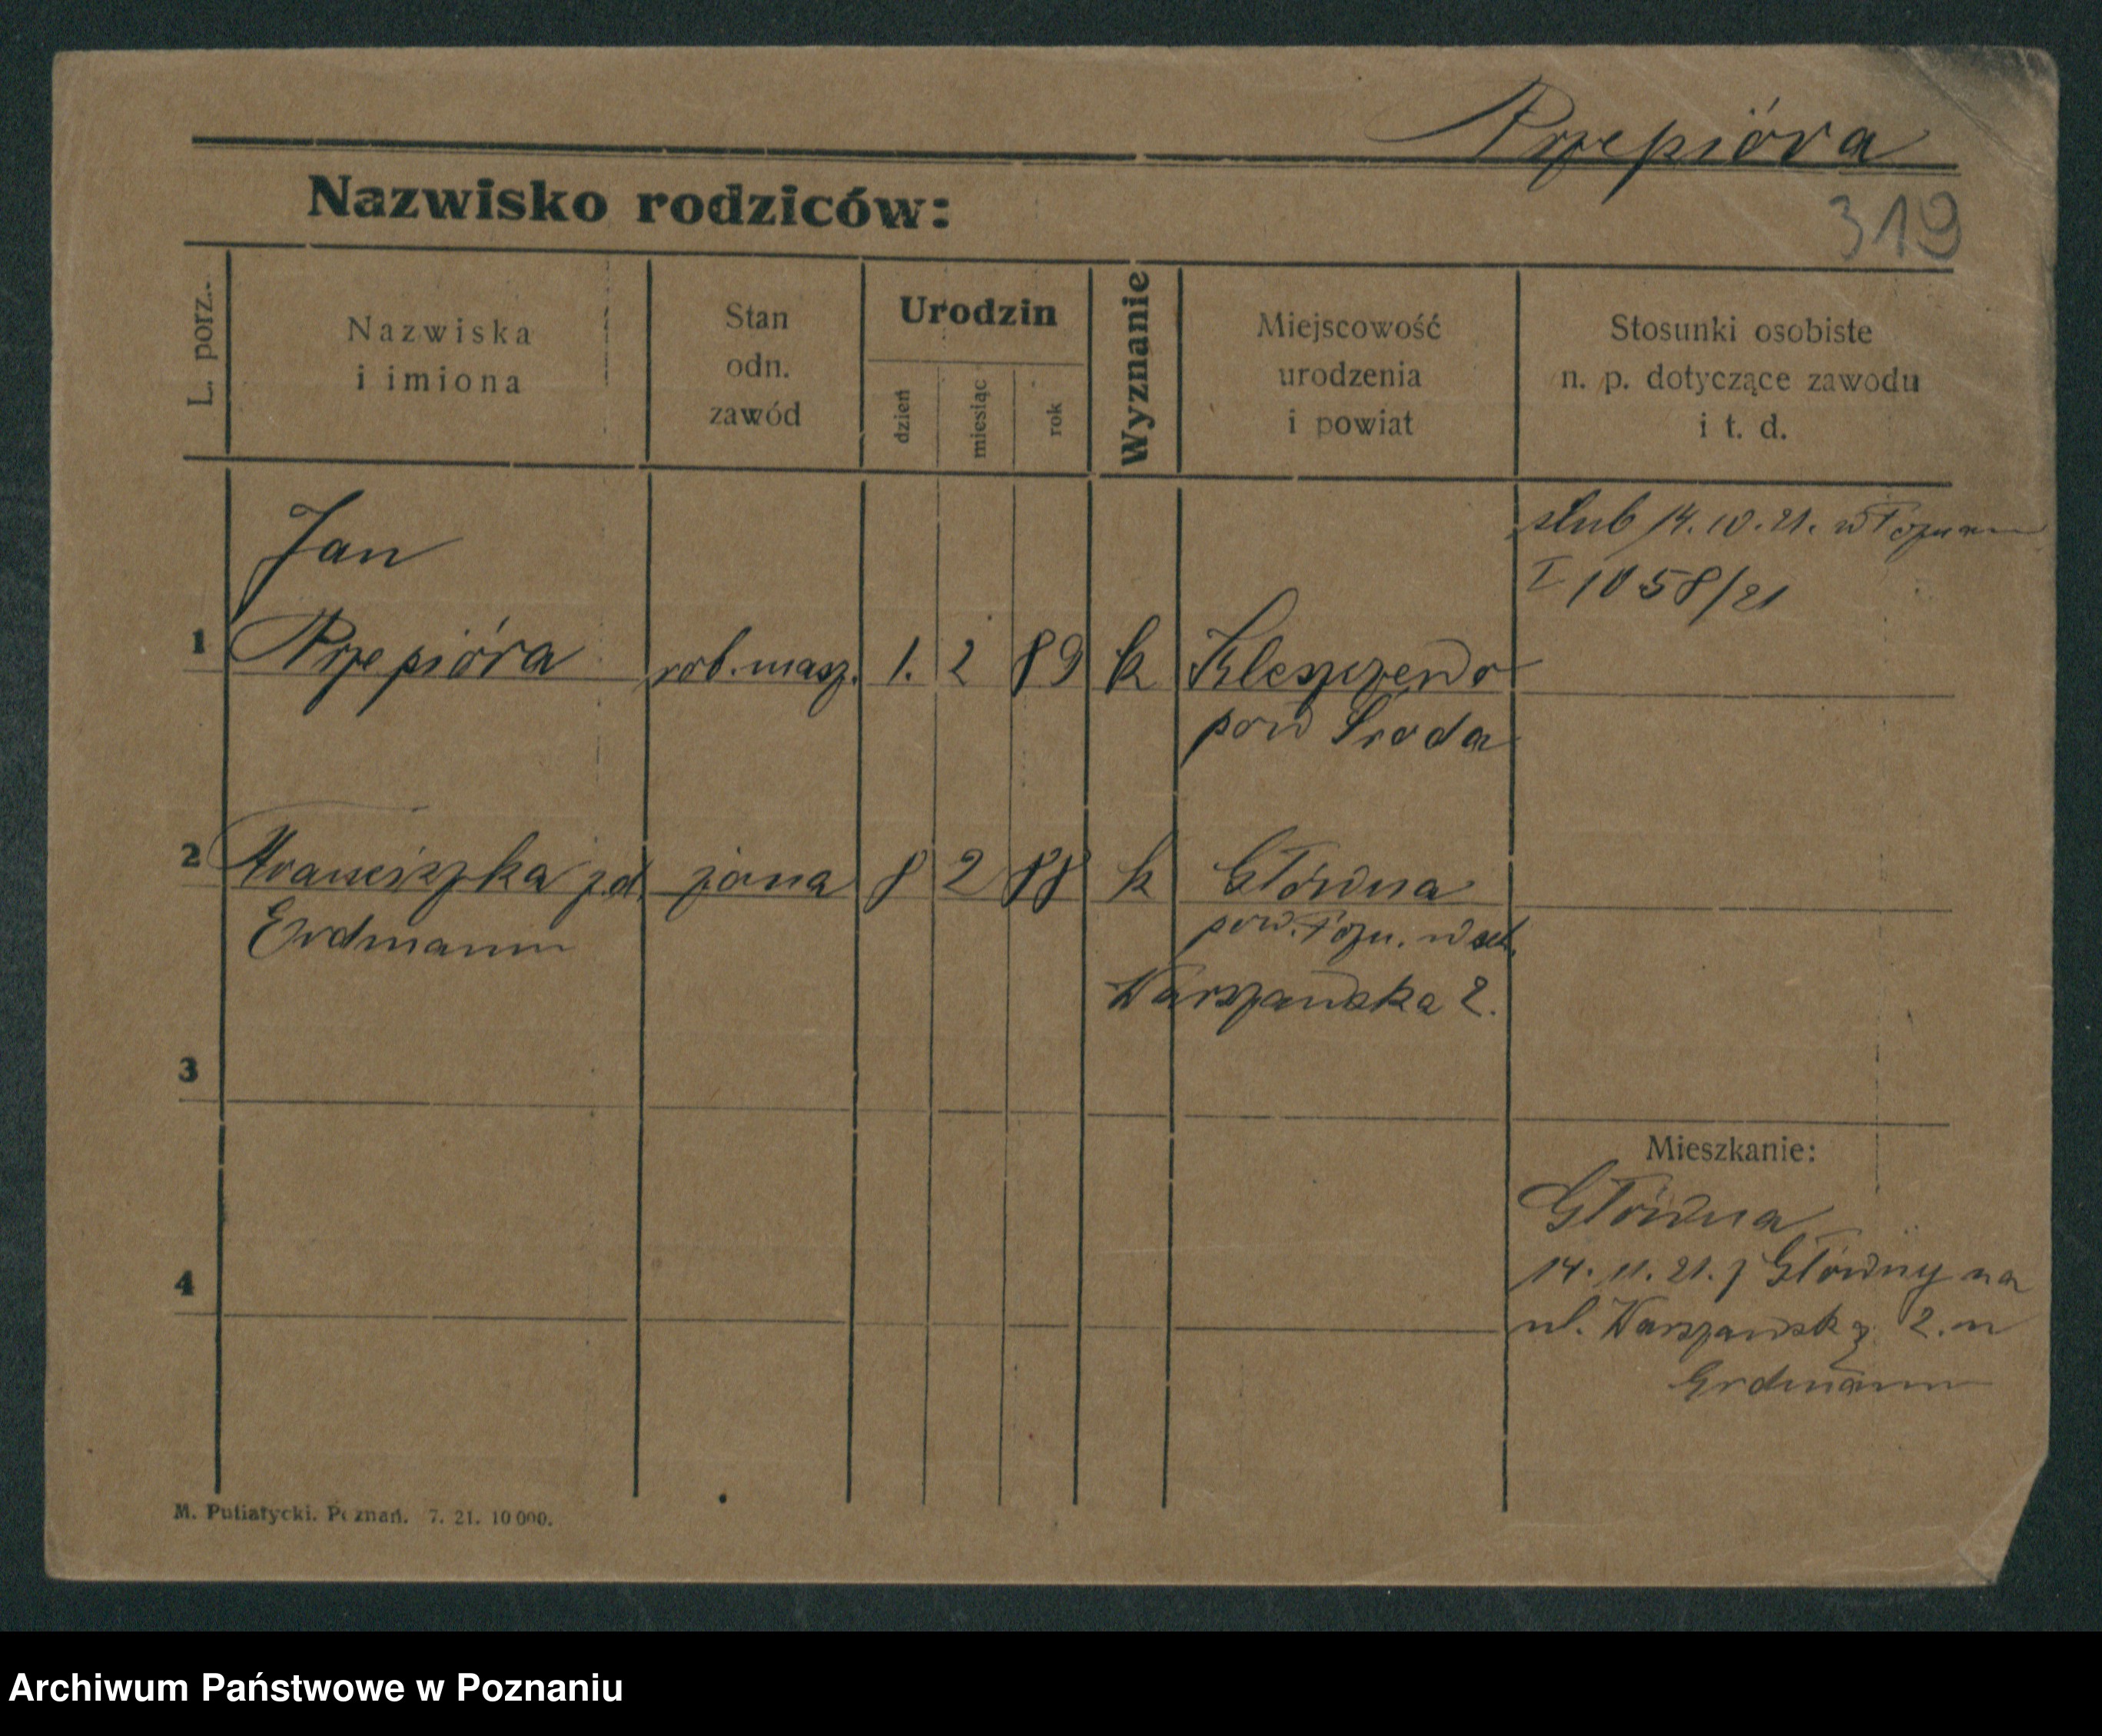 Przepióra
Nazwisko rodziców:
319
L. porz.
Nazwiska
i imiona
Stan
odn.
zawód
Urodzin
dzień
miesiąc
rok
Wyznanie
Miejscowość
urodzenia
i powiat
Stosunki osobiste
n. p. dotyczące zawodu
i t. d.
ślub 14. 10. 21. w Poznan
I 1058/21
Jan
1 Przepióra rob. masz. 1. 2 89 k Kleszczewo
pow Środa
2 Franciszka z d. żona 8 2 88 k Główna
Erdmann pow. Pozn. wsch.
Warszawska 2.
3
Mieszkanie:
Główna
14. 11. 21. z Główny na
4
ul. Warszawską 2. u
Erdmann
M. Putiatycki. Poznań. 7. 21. 10 000.
Archiwum Państwowe w Poznaniu